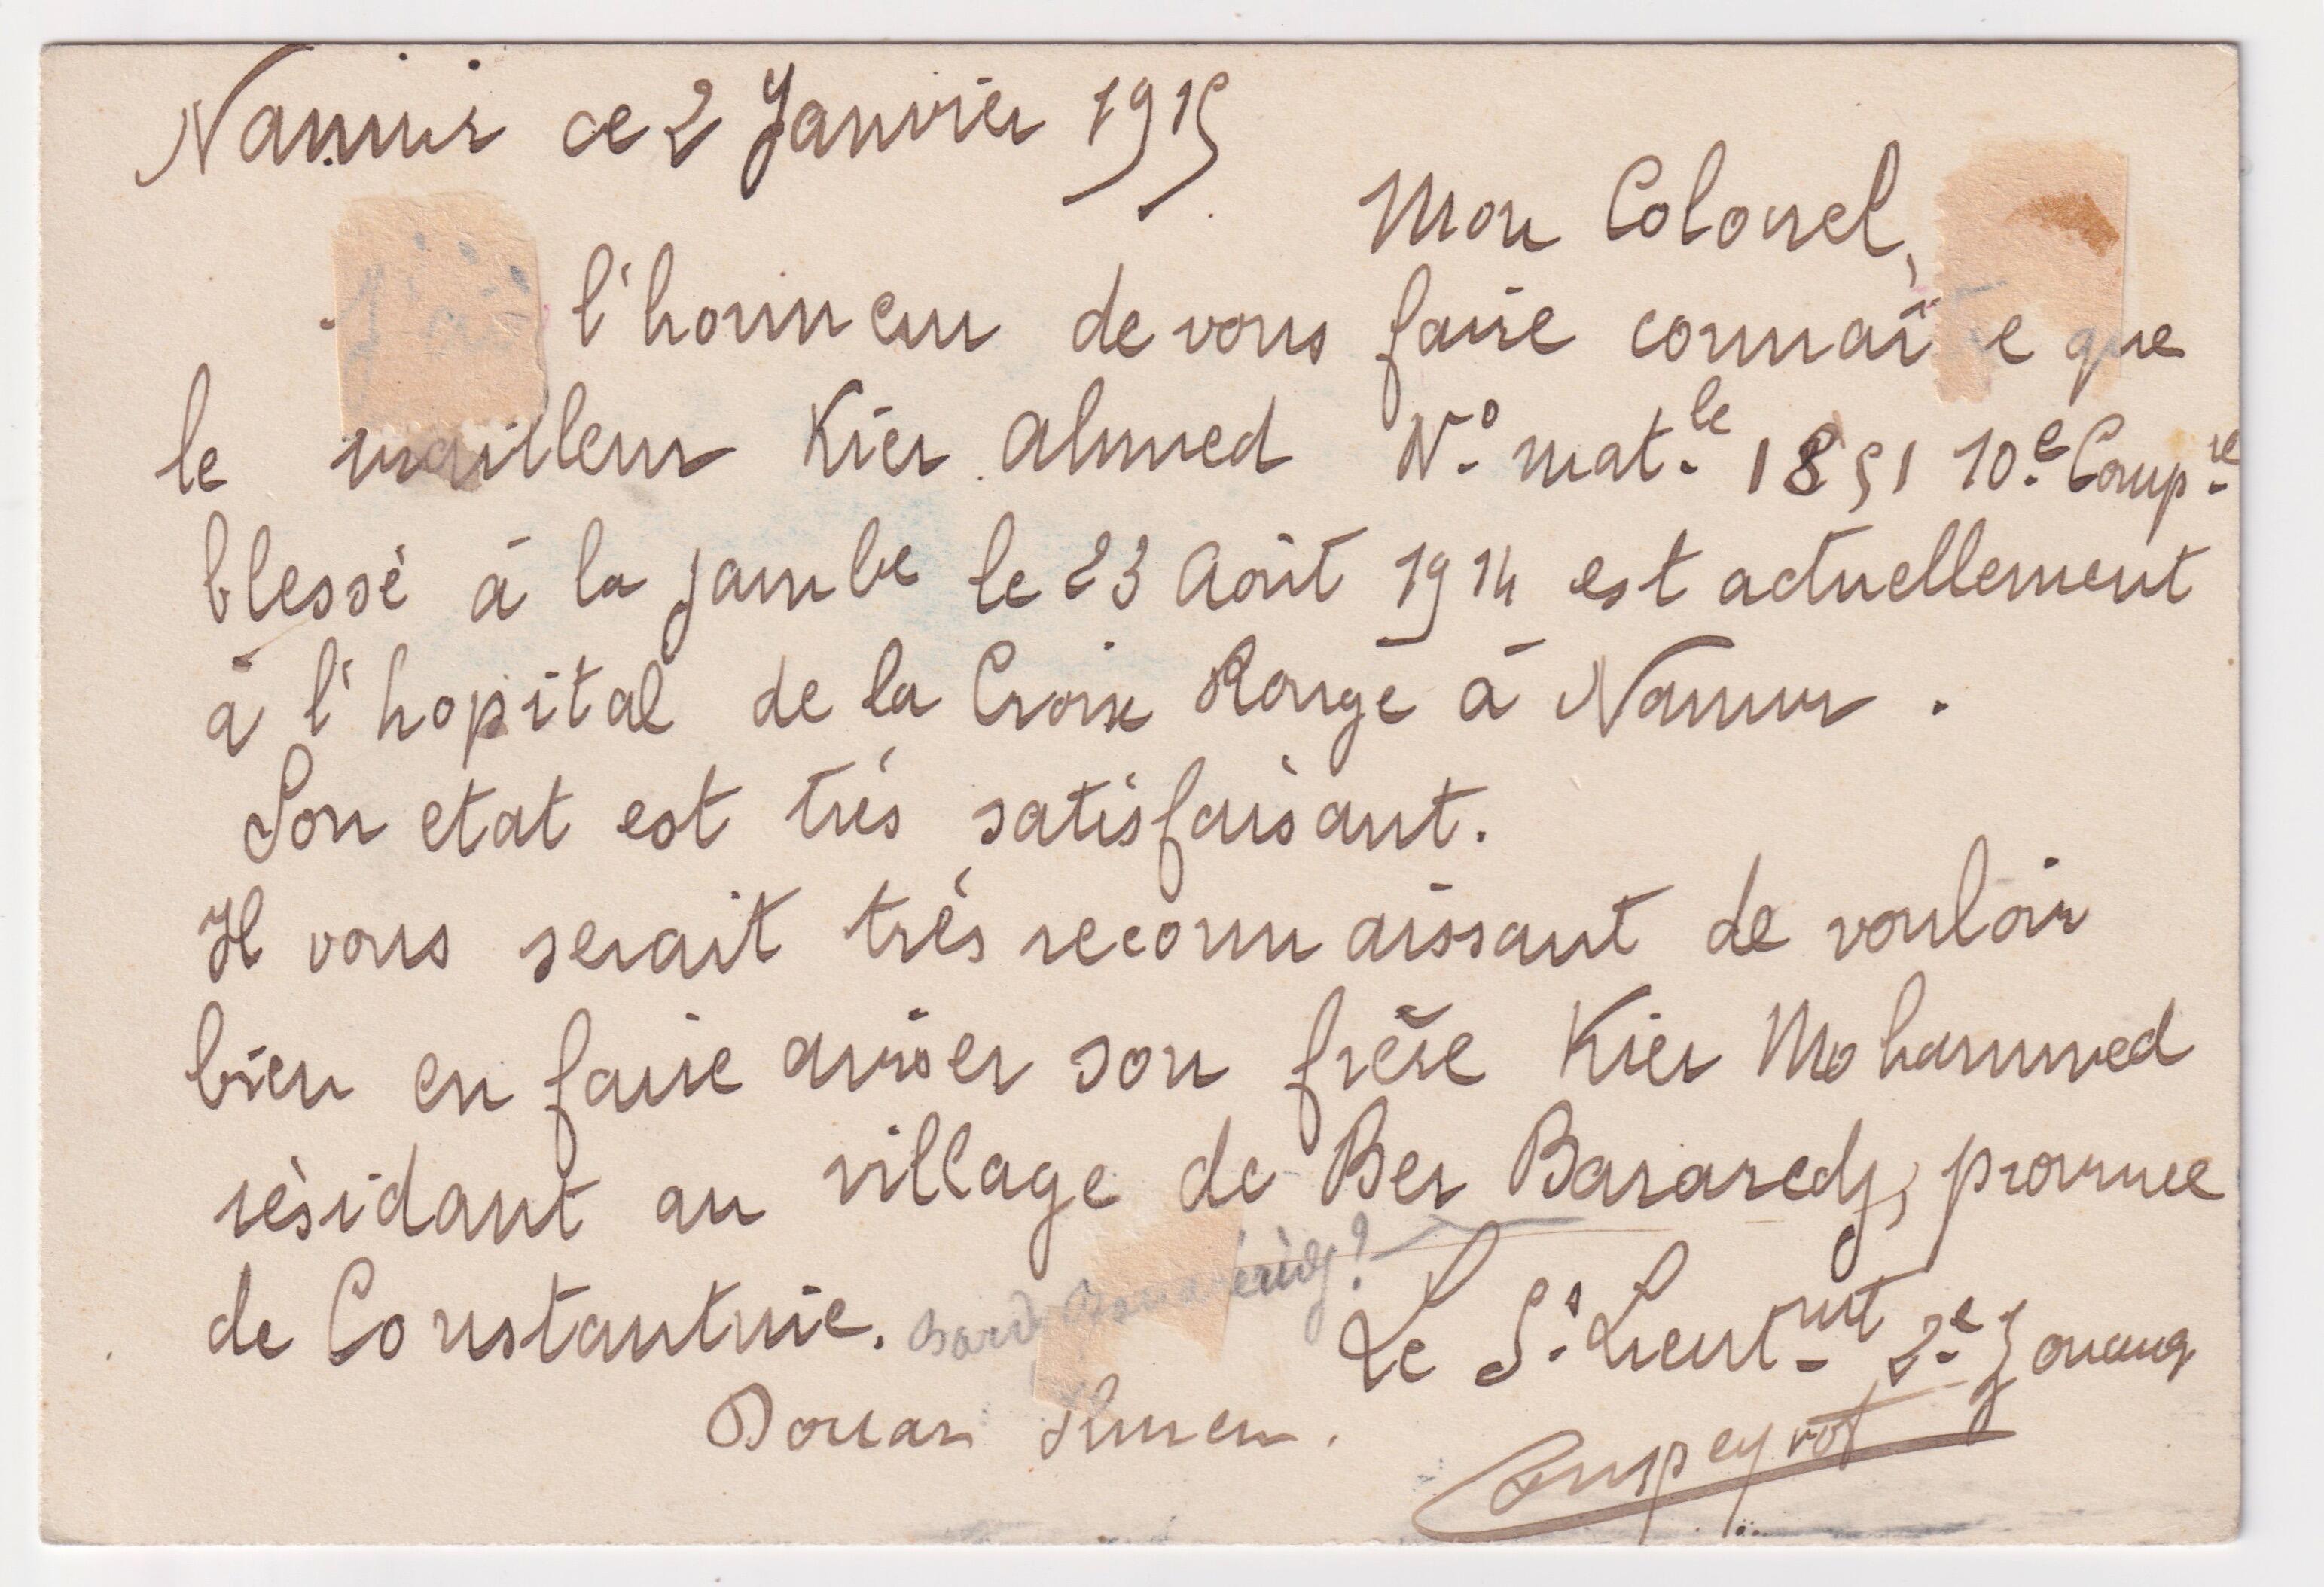 Namur ce 2 Janvier 1915.
Mon Colonel,
J'ai l'honneur de vous faire connaître que
le tirailleur Kier Ahmed N.º mat.le 1851 10.e Comp.ie
blessé à la jambe le 23 Août 1914 est actuellement
à l'hopital de la Croix Rouge à Namur.
Son etat est très satisfaisant.
Il vous serait très reconnaissant de vouloir
bien en faire aviser son frère Kier Mohammed
résidant au village de Ber Bararedj, province
de Constantine.
Le S.s Lieut.nt 2.e Zouaves
Douar